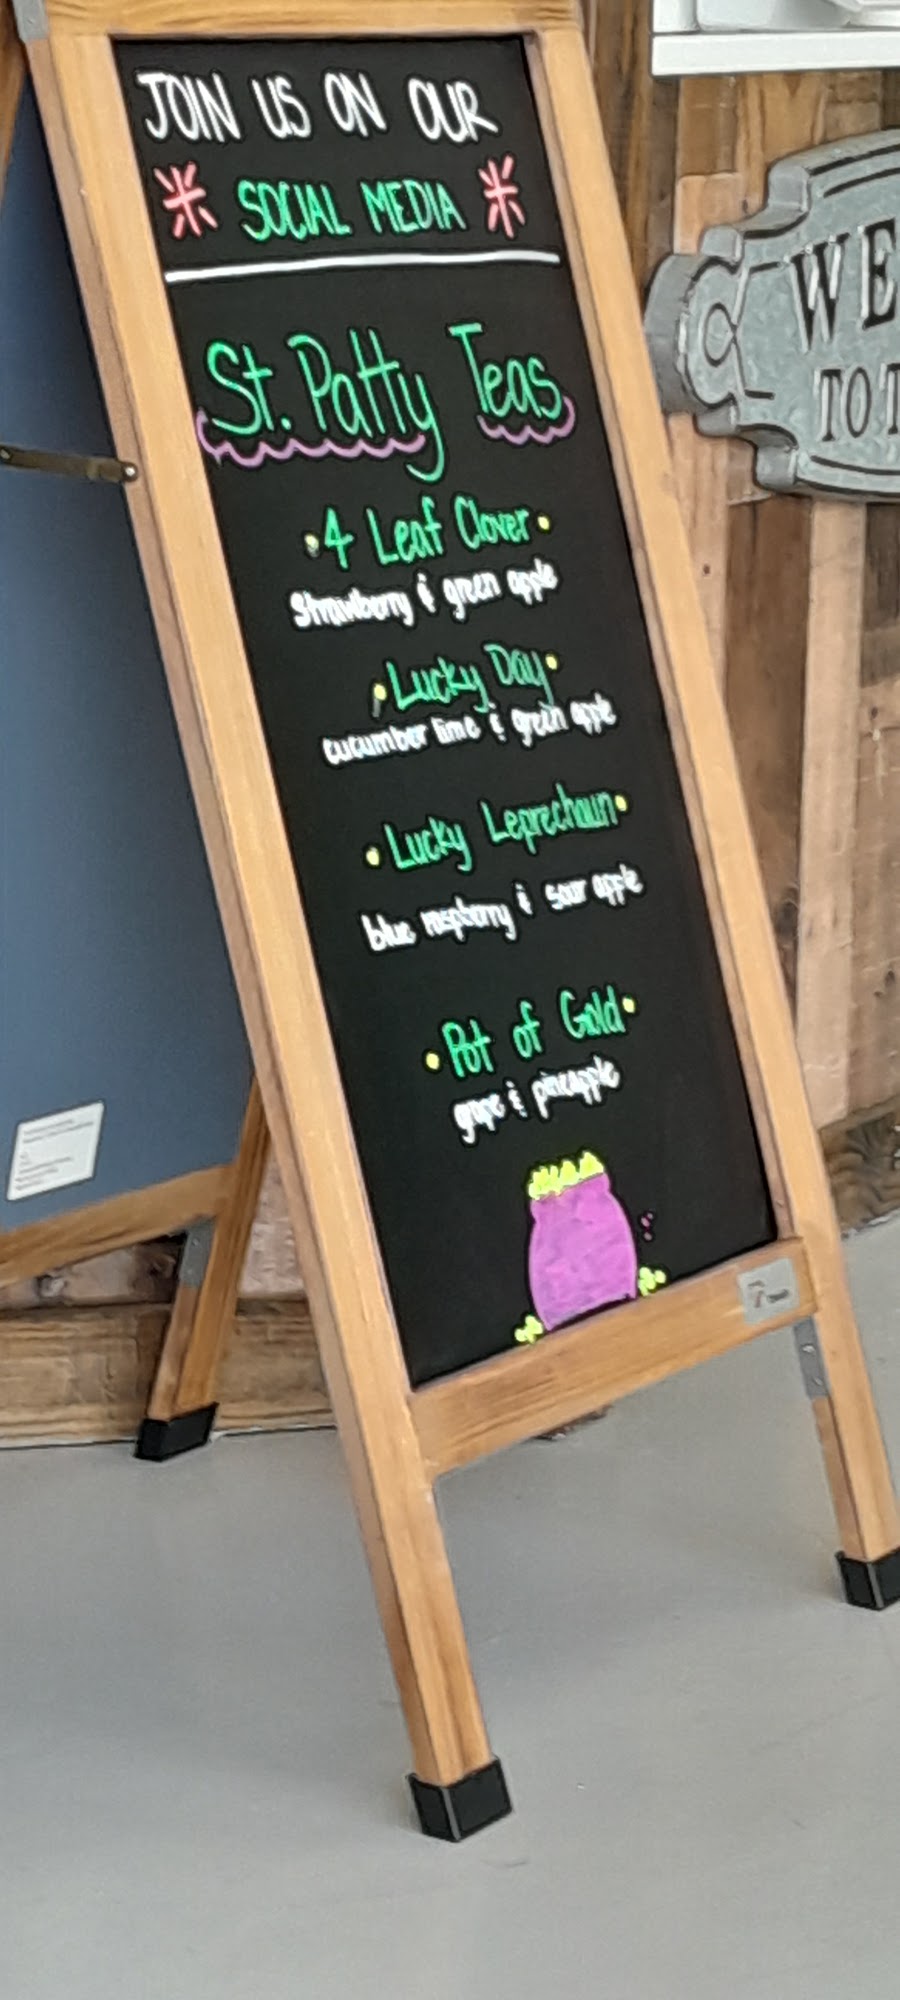 JOIN US ON OUR
SOCIAL MEDIA
St. Patty Teas
4 Leaf Clover
Strawberry & green apple
Lucky Day
cucumber lime & green apple
Lucky Leprechaun
blue raspberry & sour apple
Pot of Gold
grape & pineapple
WE
TO T